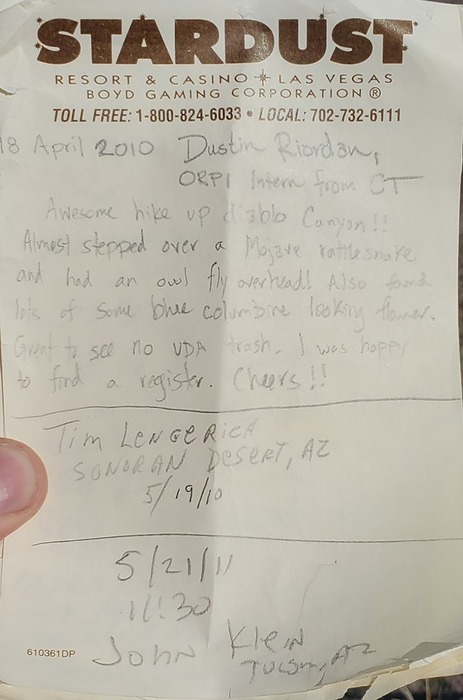 STARDUST
RESORT & CASINO LAS VEGAS
BOYD GAMING CORPORATION ®
TOLL FREE: 1-800-824-6033 • LOCAL: 702-732-6111
18 April 2010 Dustin Riordan,
ORPI Intern from CT
Awesome hike up diablo Canyon!!
Almost stepped over a Mojave rattlesnake
and had an owl fly overhead! Also found
lots of some blue columbine looking flower.
Great to see no UDA trash. I was happy
to find a register. Cheers!!
Tim LENGERICH
SONORAN DESERT, AZ
5/19/10
5/21/11
11:30
John Klein
TUCSON, AZ
610361DP